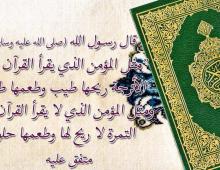 قال رسول الله (صلى الله عليه وسلم
مثل المؤمن الذي يقرأ القرآن
الأترجة ريحها طيب وطعمها ط
ومثل المؤمن الذي لا يقرأ القرآن
التمرة لا ريح لها وطعمها حلو
متفق عليه